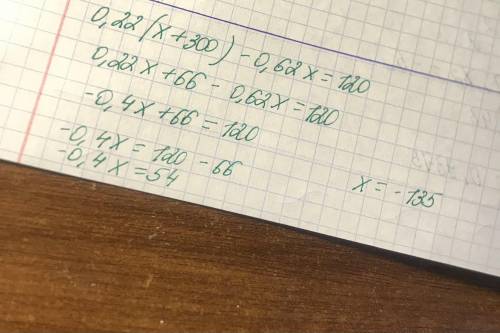 0,22(x+300) - 0,62x = 120
0,22x + 66 - 0,62x = 120
-0,4x + 66 = 120
-0,4x = 120 - 66
-0,4x = 54
x = -135